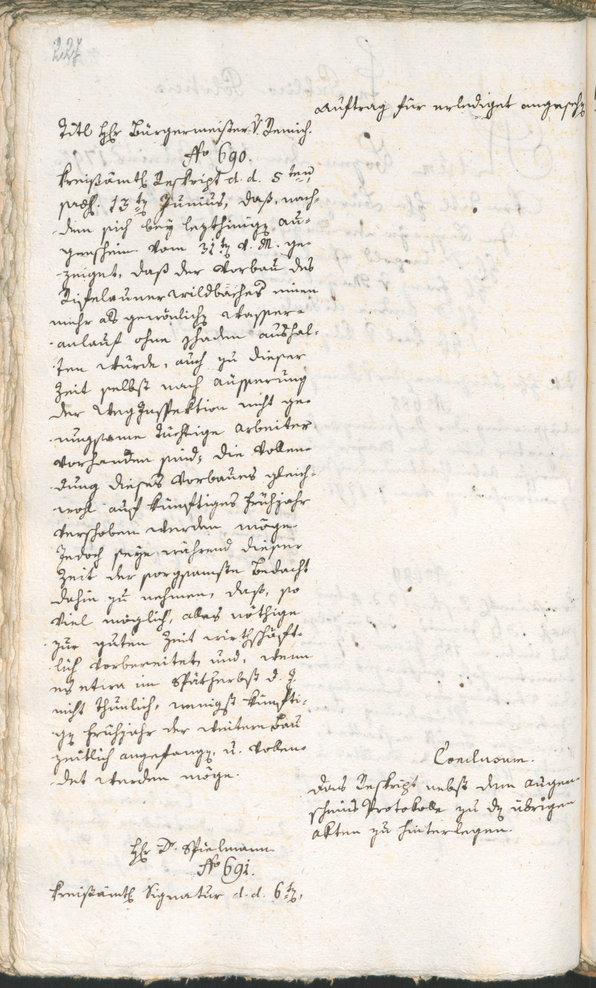 228
Auftrag für erlediget angesehen
Titl Hr Bürgermeister v. Remich.
No 690.
Kreißämtl. Reskript d. d. 5ten
praes. 12ten Junius, daß, nach-
dem sich bey letzthinigen Au-
genschein vom 31ten v. M. ge-
zeiget, daß der Vorbau des
Wildbaches einen
mehr als gewönlichen Wasser-
anlauf ohne Schaden aushal-
ten würde, auch zu dieser
Zeit selbst nach äusserung
der Weg Inspektion nicht ge-
nugsame tüchtige Arbeiter
vorhanden sind; die Vollen-
dung dieses Vorbaues gleich-
wohl auf künftiges Frühjahr
verschoben werden möge.
Jedoch seye während dieser
Zeit der sorgsamste Bedacht
dahin zu nehmen, daß, so
viel möglich, alles nöthige
zur guten Zeit wirthschäft-
lich vorbereitet, und, wenn
es etwa im Spätherbst d. J.
nicht thunlich, wenigst künfti-
gen Frühjahr der weitere Bau
zeitlich angefangen, u. vollen-
det werden möge.
Conclusum.
Das Reskript nebst dem Augen-
scheins Protokolle zu den übrigen
Akten zu hinterlegen.
Hr Dr. Spielmann
No 691.
Kreißämtl. Signatur d. d. 6ten,